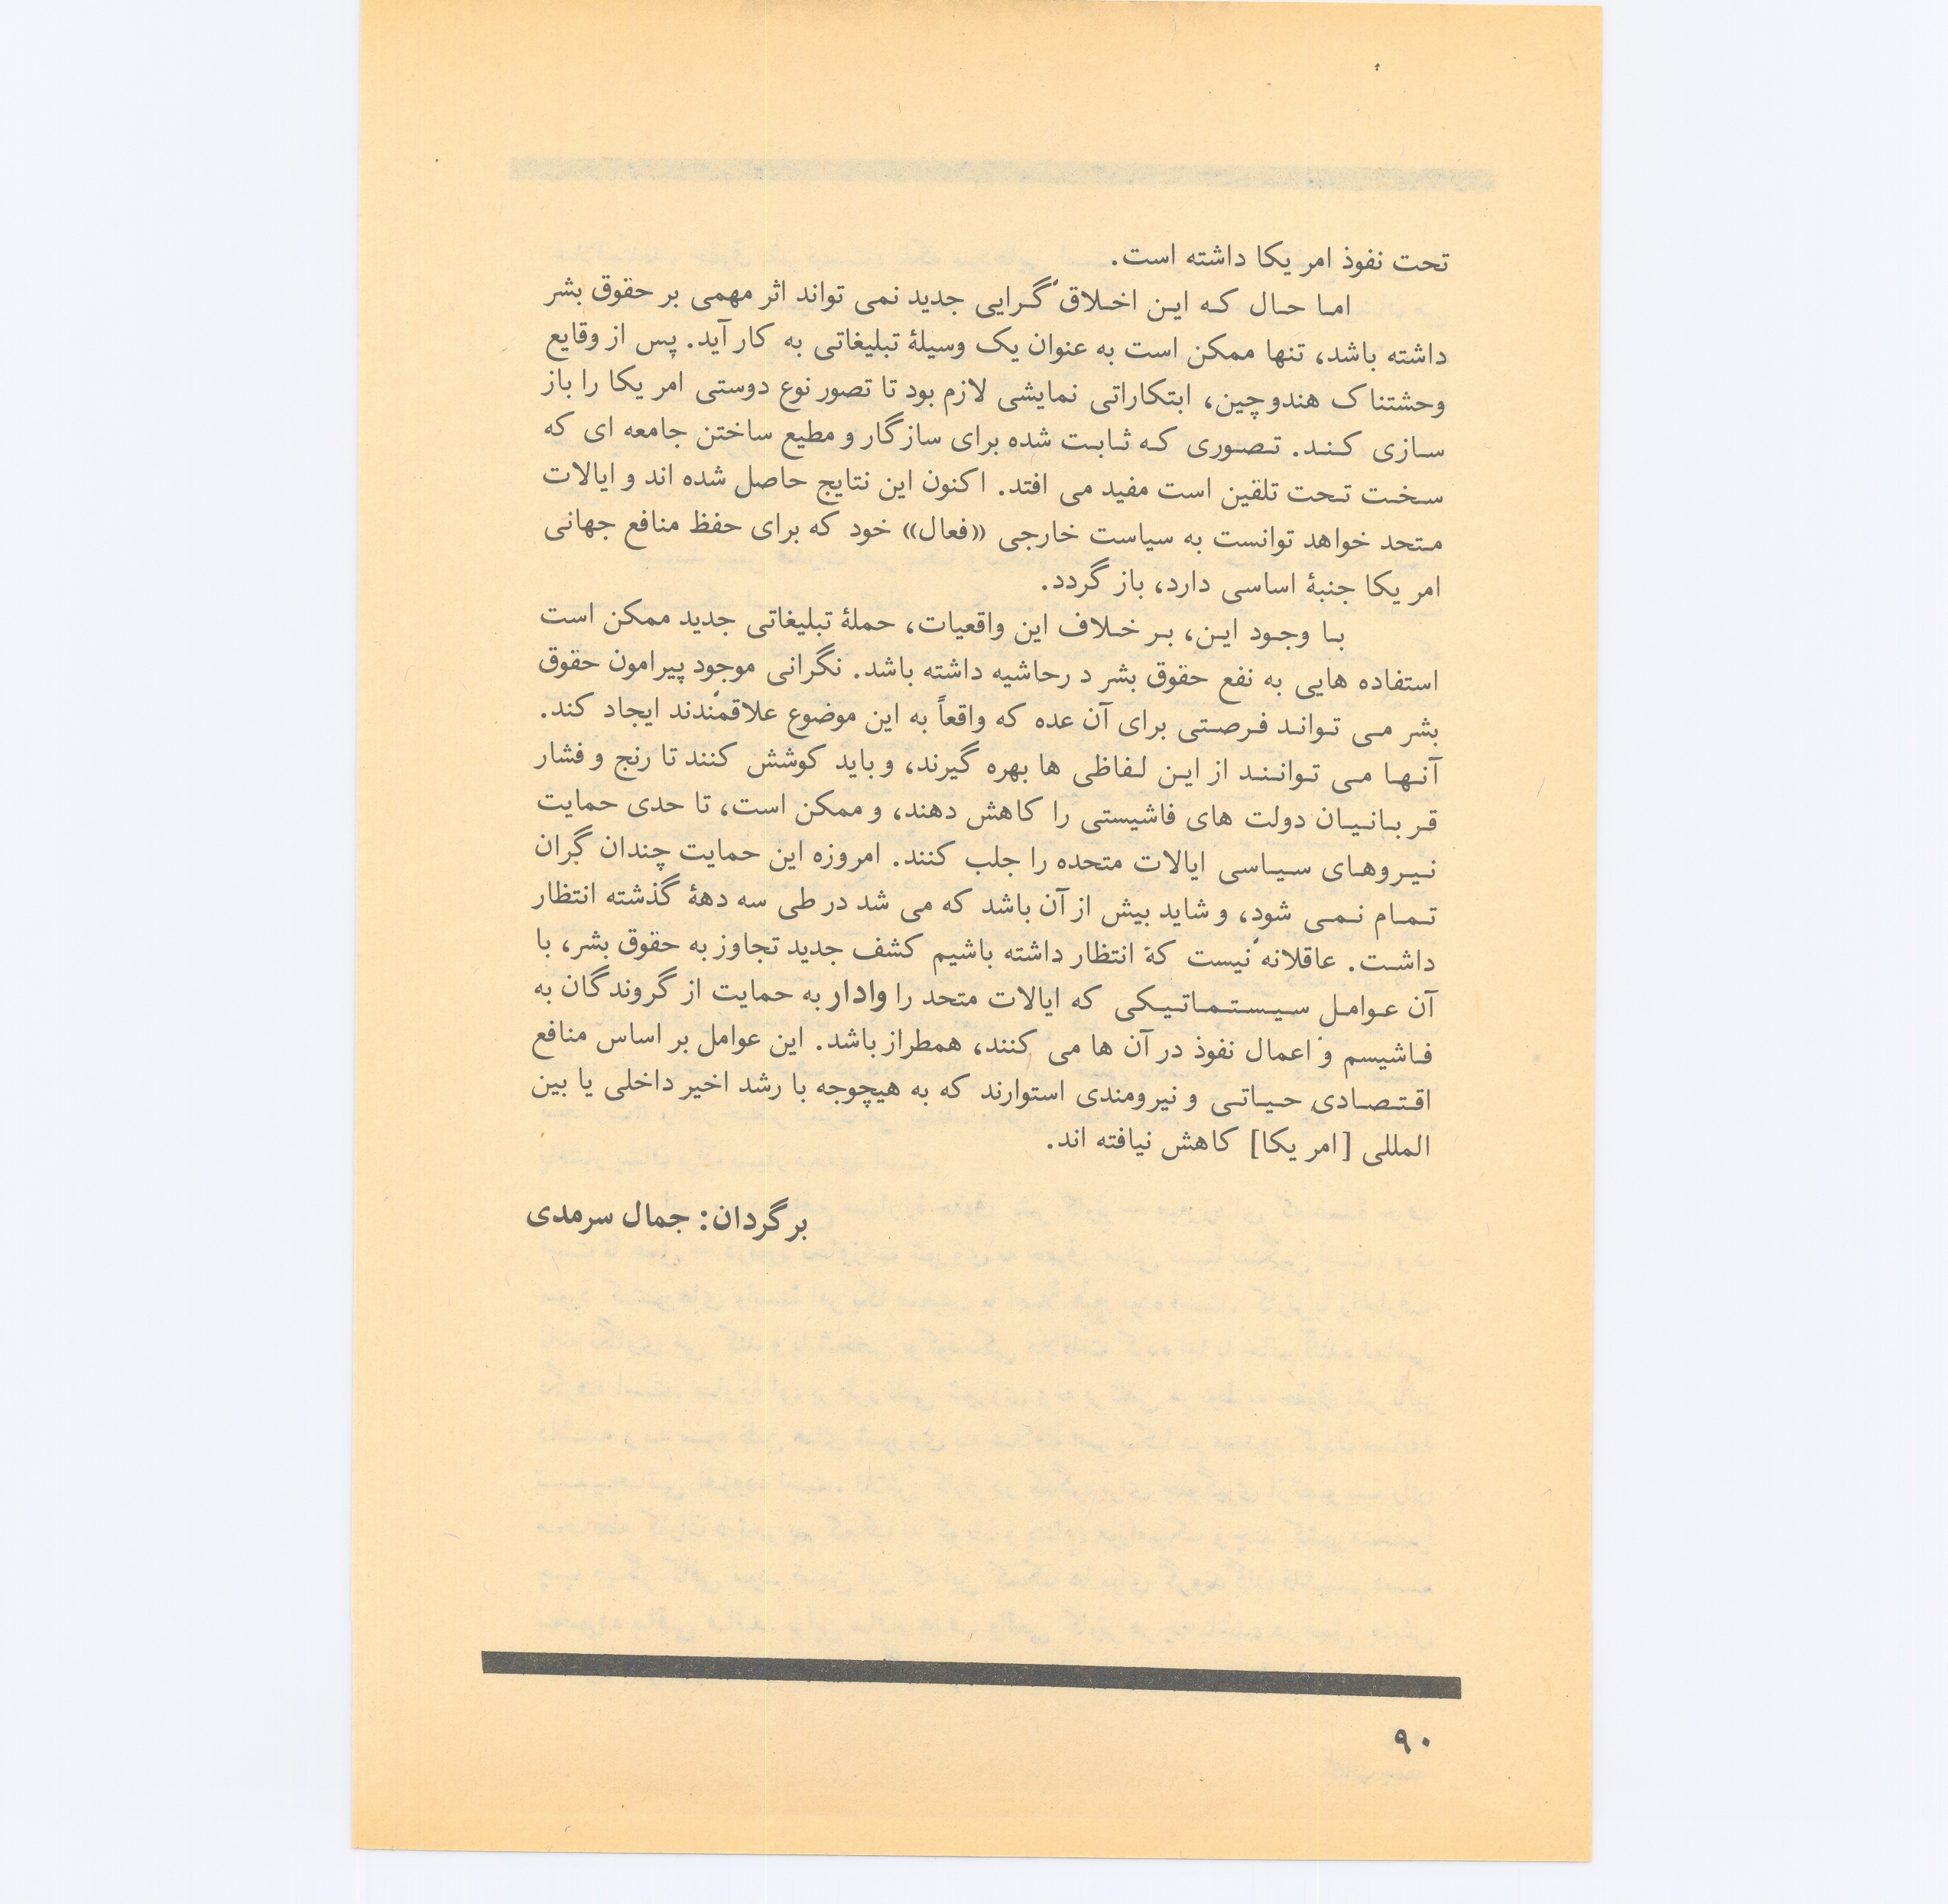 تحت نفوذ امریکا داشته است.
اما حال که این اخلاق گرایی جدید نمی تواند اثر مهمی بر حقوق بشر
داشته باشد، تنها ممکن است به عنوان یک وسیلهٔ تبلیغاتی به کار آید. پس از وقایع
وحشتناک هندوچین، ابتکاراتی نمایشی لازم بود تا تصور نوع دوستی امریکا را باز
سازی کند. تصوری که ثابت شده برای سازگار و مطیع ساختن جامعه ای که
سخت تحت تلقین است مفید می افتد. اکنون این نتایج حاصل شده اند و ایالات
متحد خواهد توانست به سیاست خارجی «فعال» خود که برای حفظ منافع جهانی
امریکا جنبهٔ اساسی دارد، باز گردد.
با وجود این، بر خلاف این واقعیات، حملهٔ تبلیغاتی جدید ممکن است
استفاده هایی به نفع حقوق بشر د رحاشیه داشته باشد. نگرانی موجود پیرامون حقوق
بشر می تواند فرصتی برای آن عده که واقعاً به این موضوع علاقمندند ایجاد کند.
آنها می توانند از این لفاظی ها بهره گیرند، و باید کوشش کنند تا رنج و فشار
قربانیان دولت های فاشیستی را کاهش دهند، و ممکن است، تا حدی حمایت
نیروهای سیاسی ایالات متحده را جلب کنند. امروزه این حمایت چندان گران
تمام نمی شود، و شاید بیش از آن باشد که می شد در طی سه دههٔ گذشته انتظار
داشت. عاقلانه نیست که انتظار داشته باشیم کشف جدید تجاوز به حقوق بشر، با
آن عوامل سیستماتیکی که ایالات متحد را وادار به حمایت از گروندگان به
فاشیسم و اعمال نفوذ در آن ها می کنند، همطراز باشد. این عوامل بر اساس منافع
اقتصادی حیاتی و نیرومندی استوارند که به هیچوجه با رشد اخیر داخلی یا بین
المللی [امریکا] کاهش نیافته اند.
برگردان: جمال سرمدی
۹۰